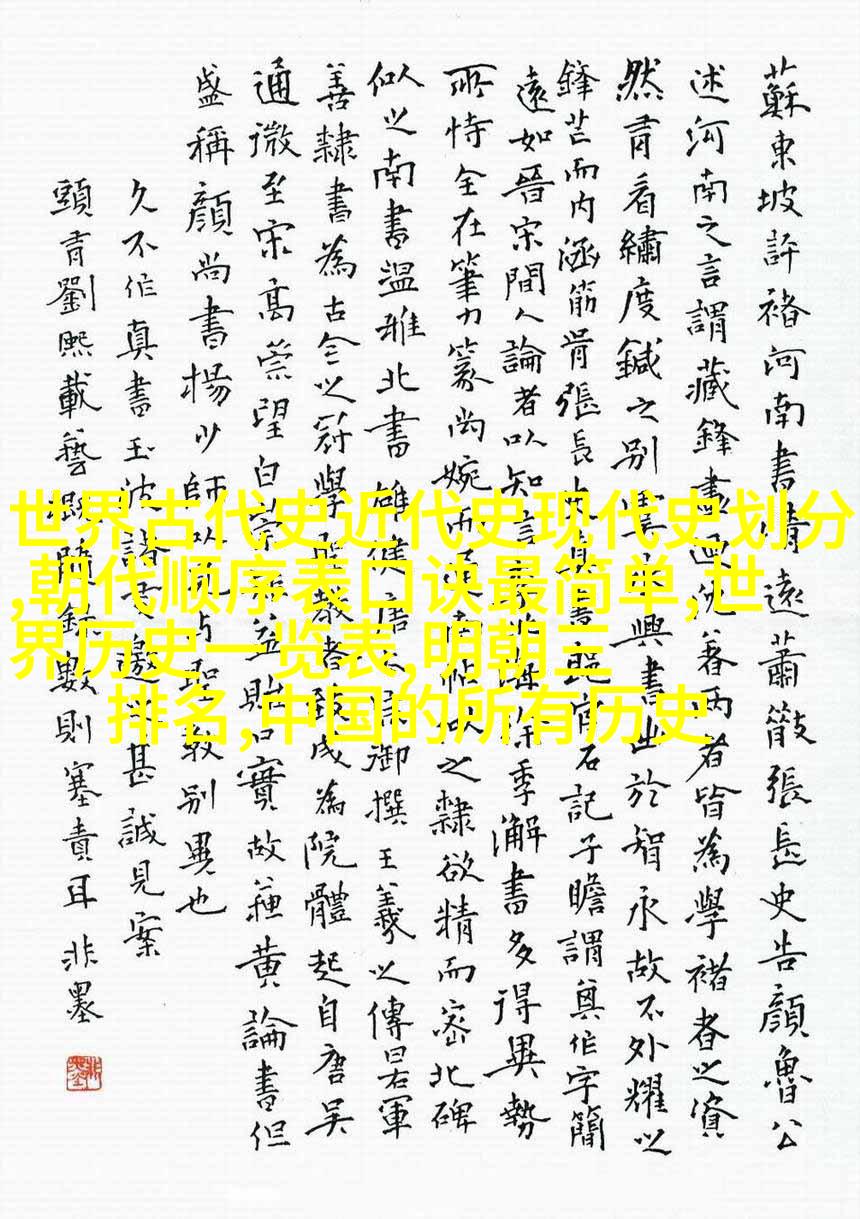 蘇東坡評褚河南書清遠蕭散張長史告顏魯公
述河南之言謂藏鋒畫迺沈著兩者皆為學褚者之資
然有看繡度鍼之別 興書出於智永故不外耀以
鋒芒而內涵筋骨張長 真書 官石記子瞻謂其作字簡
遠如晉宋間人論者以知言 季海書多得異勢
所恃全在筆力篆尚婉而 南帖 之隸欲精而密北碑
似之南書溫雅北書雄健唐 御撰王羲之傳呂軍
善隸書為古今之冠學 教者 成為院體起自唐吳
通微至宋高崇望白 益貽口實故蘇黃論書但
盛稱顏尚書楊少師以見與聖教別異也
久不作真書玉波諸 邀之甚誠見案
頭有劉熙載藝概隨錄數則塞責耳非墨
世界古代史近代史现代史划分
,朝代顺序表口诀最简单,世
界历史一览表,明朝三
排名,中国的所有历史